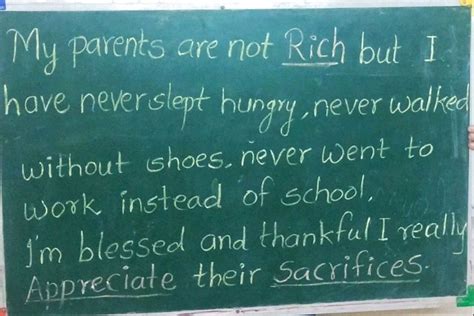 My parents are not Rich but I
have never slept hungry, never walked
without shoes. never went to
work instead of school.
I'm blessed and thankful I really
Appreciate their Sacrifices.